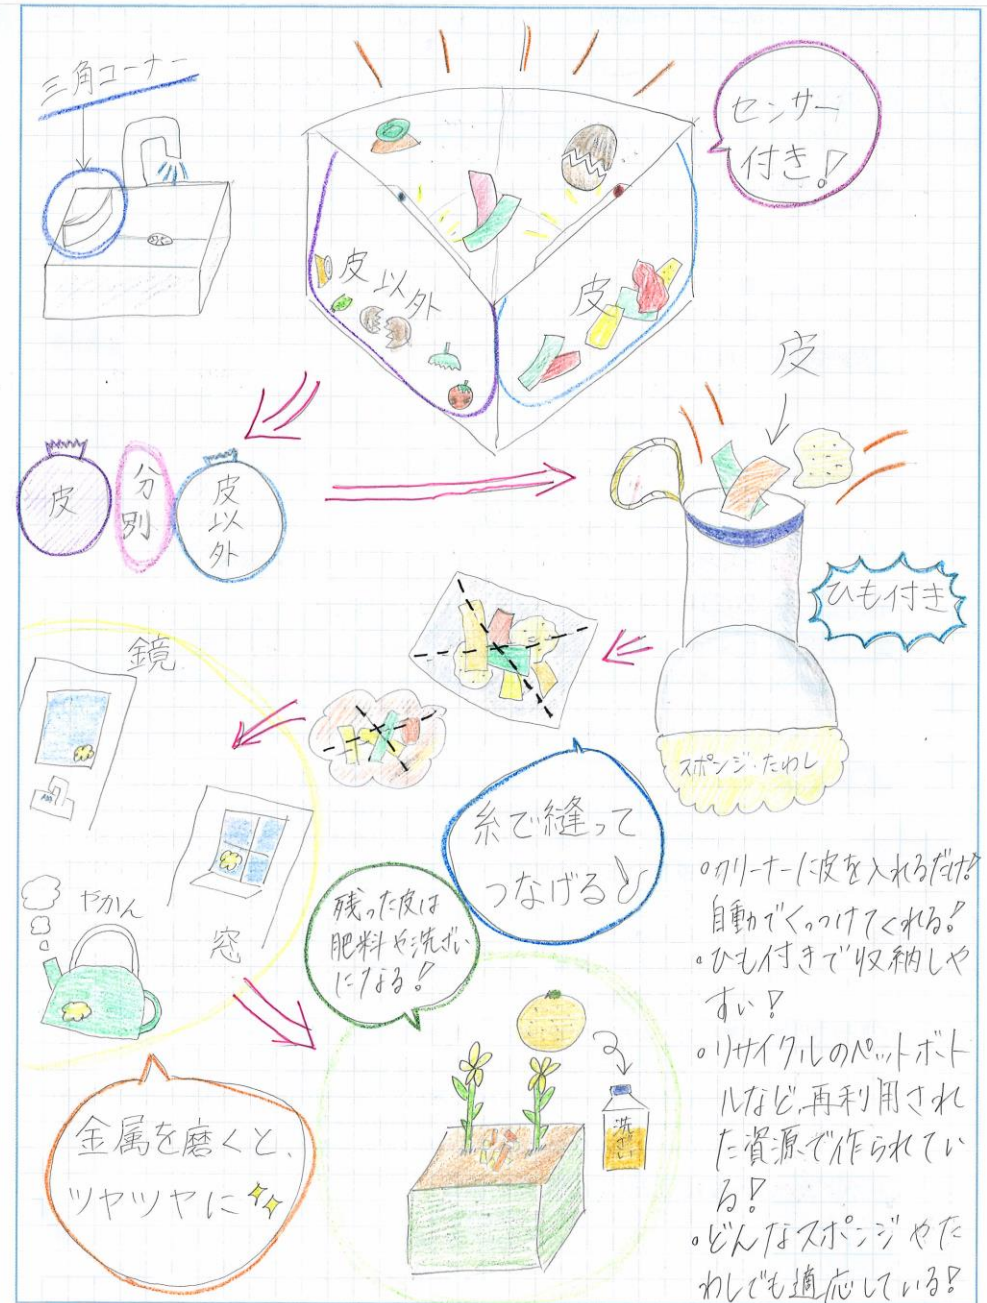 三角コーナー
センサー
付き!
皮以外
皮
皮
分
別
皮
以
外
皮
ひも付き
スポンジ・たわし
鏡
糸で縫って
つなげる♪
窓
やかん
残った皮は
肥料や洗ざい
になる!
洗ざい
金属を磨くと、
ツヤツヤに
。クリーナーに皮を入れるだけ!
自動でくっつけてくれる!
。ひも付きで収納しや
すい!
。リサイクルのペットボト
ルなど、再利用され
た資源で作られてい
る!
。どんなスポンジやた
わしでも適応している!